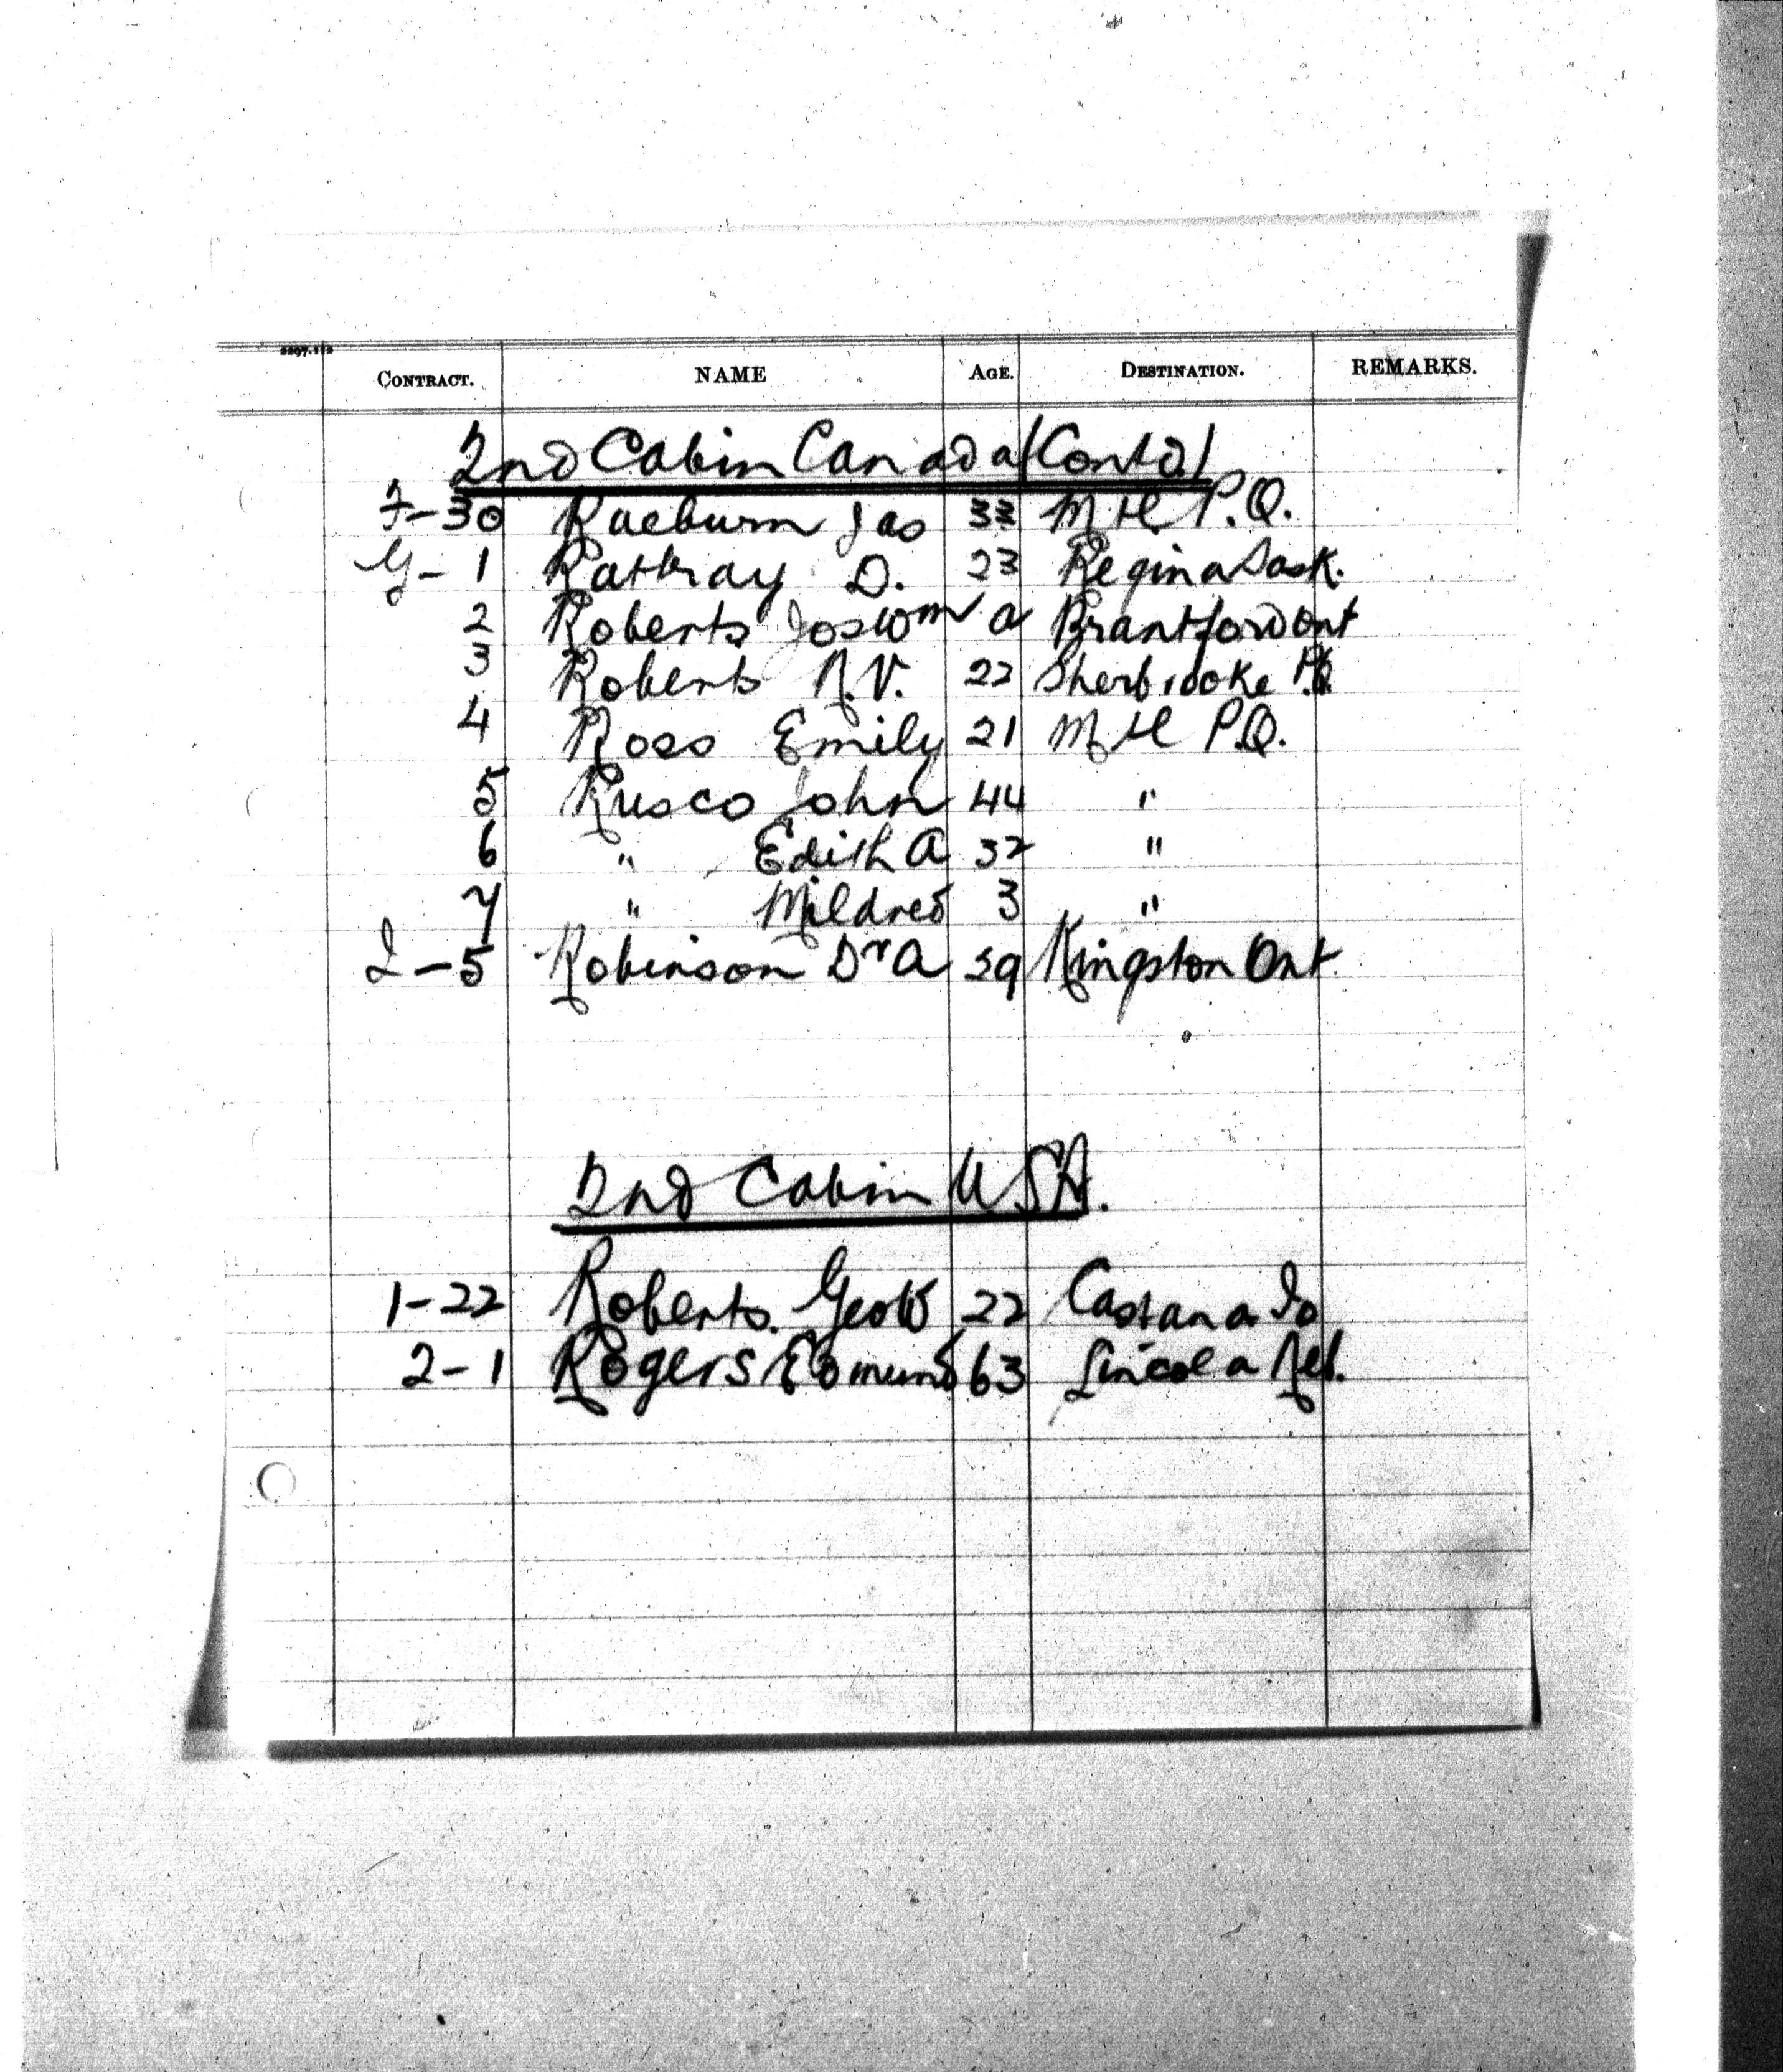 2297.112
CONTRACT. NAME AGE. DESTINATION. REMARKS.
2nd Cabin Canada (Contd)
F-30 Raeburn Jas 33 Mtl P.Q.
G-1 Rattray D. 23 Regina Sask.
2 Roberts Jos Wm a Brantford Ont
3 Roberts R.V. 22 Sherbrooke P.Q.
4 Ross Emily 21 Mtl P.Q.
5 Rusco John 44 "
6 " Edith A 32 "
7 " Mildred 3 "
I-5 Robinson Dr A 39 Kingston Ont.
2nd Cabin USA.
1-22 Roberts. Geo W 22 Castana Io
2-1 Rogers Edmund 63 Lincoln Neb.